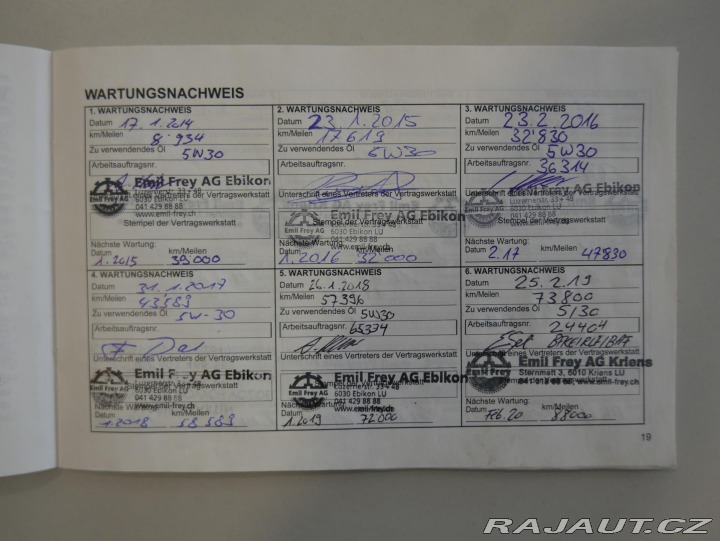 WARTUNGSNACHWEIS
1. WARTUNGSNACHWEIS
Datum 17.1.2014
km/Meilen 8'934
Zu verwendendes Öl 5W30
Arbeitsauftragsnr.
Emil Frey AG Ebikon
6030 Ebikon LU
041 429 88 88
www.emil-frey.ch
Stempel der Vertragswerkstatt
Nächste Wartung:
Datum km/Meilen
1.2015 39000
2. WARTUNGSNACHWEIS
Datum 23.1.2015
km/Meilen 17619
Zu verwendendes Öl 5W30
Arbeitsauftragsnr.
Unterschrift eines Vertreters der Vertragswerkstatt
Emil Frey AG Ebikon
Stempel der Vertragswerkstatt
6030 Ebikon LU
041 429 88 88
www.emil-frey.ch
Nächste Wartung:
Datum km/Meilen
1.2016 32000
3. WARTUNGSNACHWEIS
Datum 23.2.2016
km/Meilen 32'830
Zu verwendendes Öl 5W30
Arbeitsauftragsnr. 36314
Unterschrift eines Vertreters der Vertragswerkstatt
Emil Frey AG Ebikon
Luzernerstr. 33+48
6030 Ebikon LU
041 429 88 88
Stempel der Vertragswerkstatt
www.emil-frey.ch
Nächste Wartung:
Datum km/Meilen
2.17 47830
4. WARTUNGSNACHWEIS
Datum 31.1.2017
km/Meilen 43'583
Zu verwendendes Öl 5W-30
Arbeitsauftragsnr.
Unterschrift eines Vertreters der Vertragswerkstatt
Emil Frey AG Ebikon
6030 Ebikon LU
041 429 88 88
www.emil-frey.ch
Nächste Wartung:
Datum km/Meilen
1.2018 58583
5. WARTUNGSNACHWEIS
Datum 26.1.2018
km/Meilen 57396
Zu verwendendes Öl 5W30
Arbeitsauftragsnr. 65334
Unterschrift eines Vertreters der Vertragswerkstatt
Emil Frey AG Ebikon
Luzernerstr. 33+48
6030 Ebikon LU
041 429 88 88
www.emil-frey.ch
Nächste Wartung:
Datum km/Meilen
1.2019 72000
6. WARTUNGSNACHWEIS
Datum 25.2.19
km/Meilen 73800
Zu verwendendes Öl 5/30
Arbeitsauftragsnr. 24404
Unterschrift eines Vertreters der Vertragswerkstatt
Emil Frey AG Kriens
Sternmatt 3, 6010 Kriens LU
www.emil-frey.ch
Nächste Wartung:
Datum km/Meilen
Feb 20 88000
19
RAJAUT.CZ